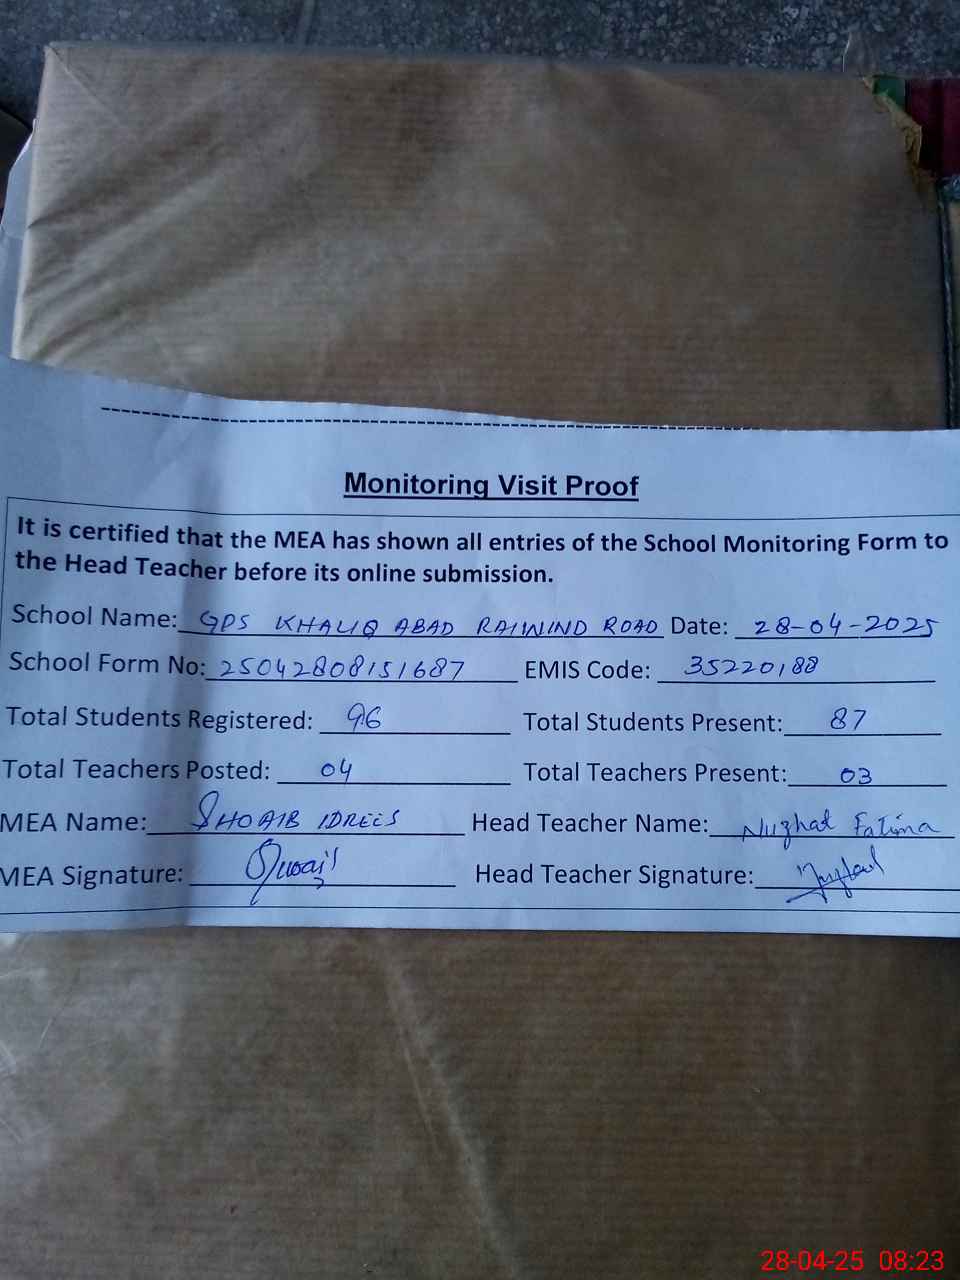 Monitoring Visit Proof
It is certified that the MEA has shown all entries of the School Monitoring Form to
the Head Teacher before its online submission.
School Name: GPS KHALIQ ABAD RAIWIND ROAD Date: 28-04-2025
School Form No: 25042808151687 EMIS Code: 35220188
Total Students Registered: 96 Total Students Present: 87
Total Teachers Posted: 04 Total Teachers Present: 03
MEA Name: SHOAIB IDREES Head Teacher Name: Nuzhat Fatima
MEA Signature: Head Teacher Signature:
28-04-25 08:23